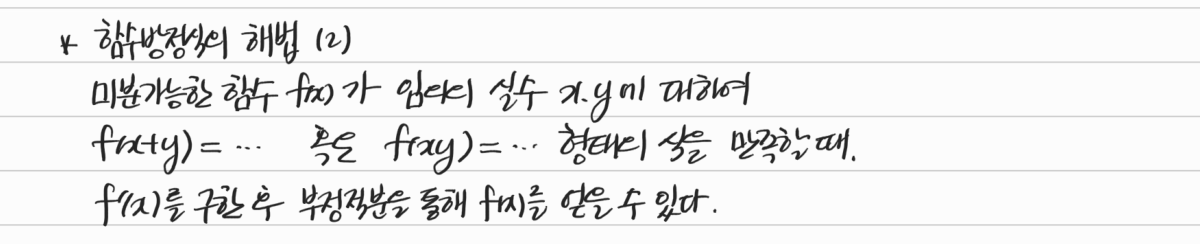 * 함수방정식의 해법 (2)
미분가능한 함수 f(x)가 임의의 실수 x, y에 대하여
f(x+y) = ··· 혹은 f(xy) = ··· 형태의 식을 만족할 때,
f'(x)를 구한 후 부정적분을 통해 f(x)를 얻을 수 있다.